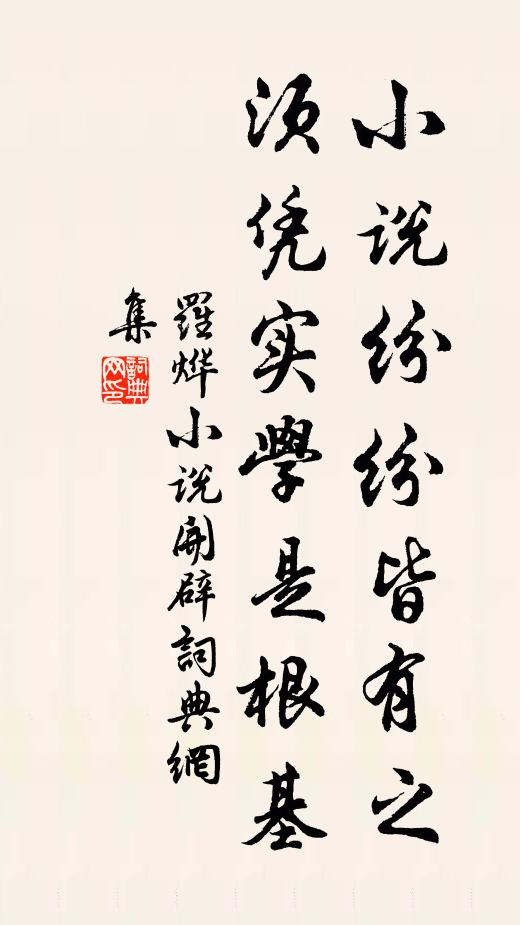 小说纷纷皆有之
须凭实学是根基
羅烨小说開辟詞典網
集
詞典网印